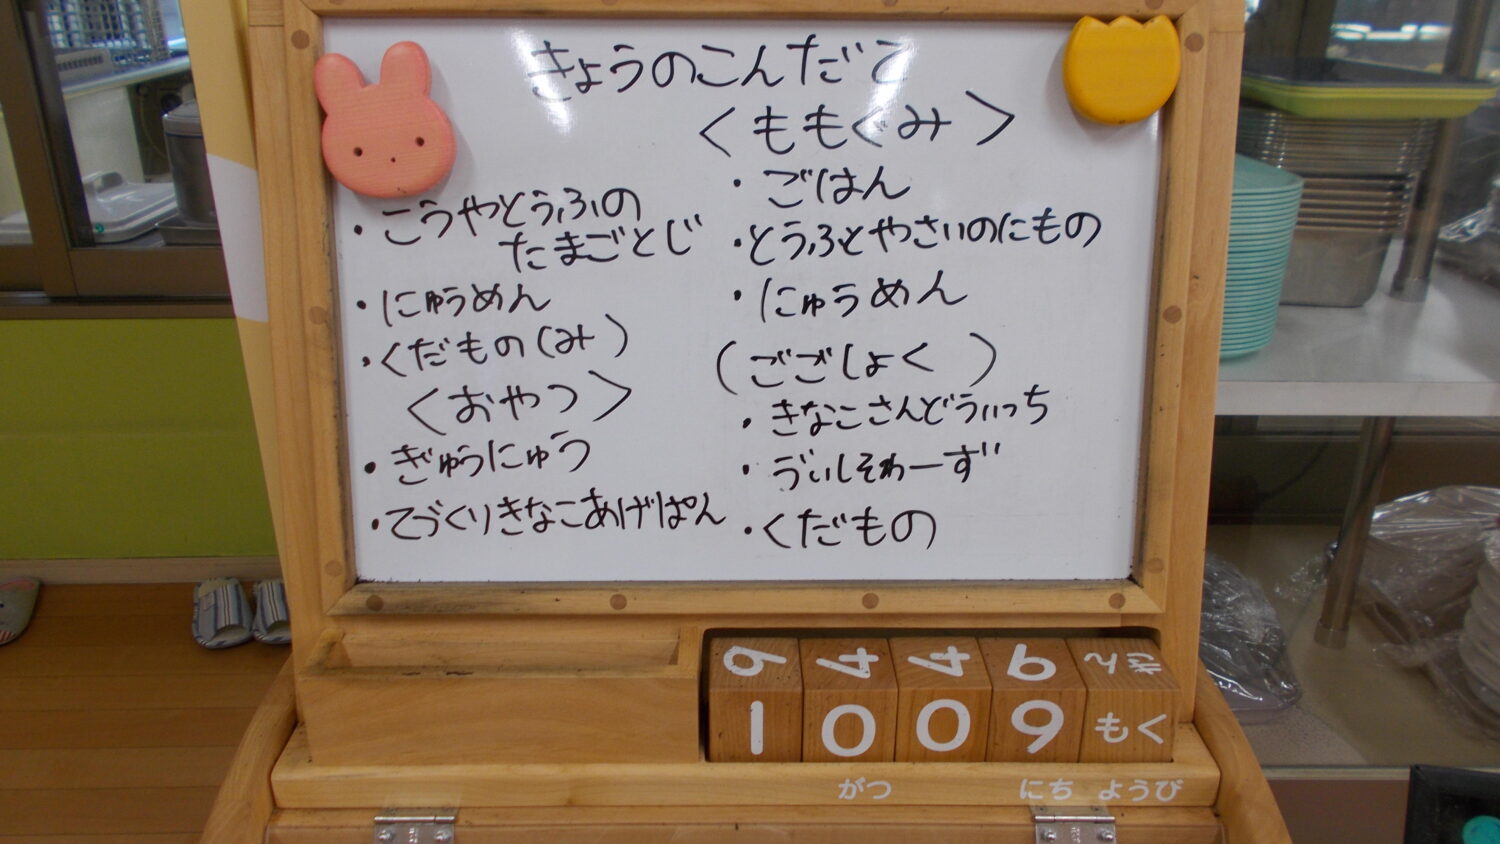 きょうのこんだて
・こうやとうふの
たまごとじ
・にゅうめん
・くだもの(み)
〈おやつ〉
・ぎゅうにゅう
・てづくりきなこあげぱん
〈ももぐみ〉
・ごはん
・とうふとやさいのにもの
・にゅうめん
(ごごしょく)
・きなこさんどういっち
・ゔぃしそわーず
・くだもの
9 4 4 6
10 09 もく
がつ にち ようび